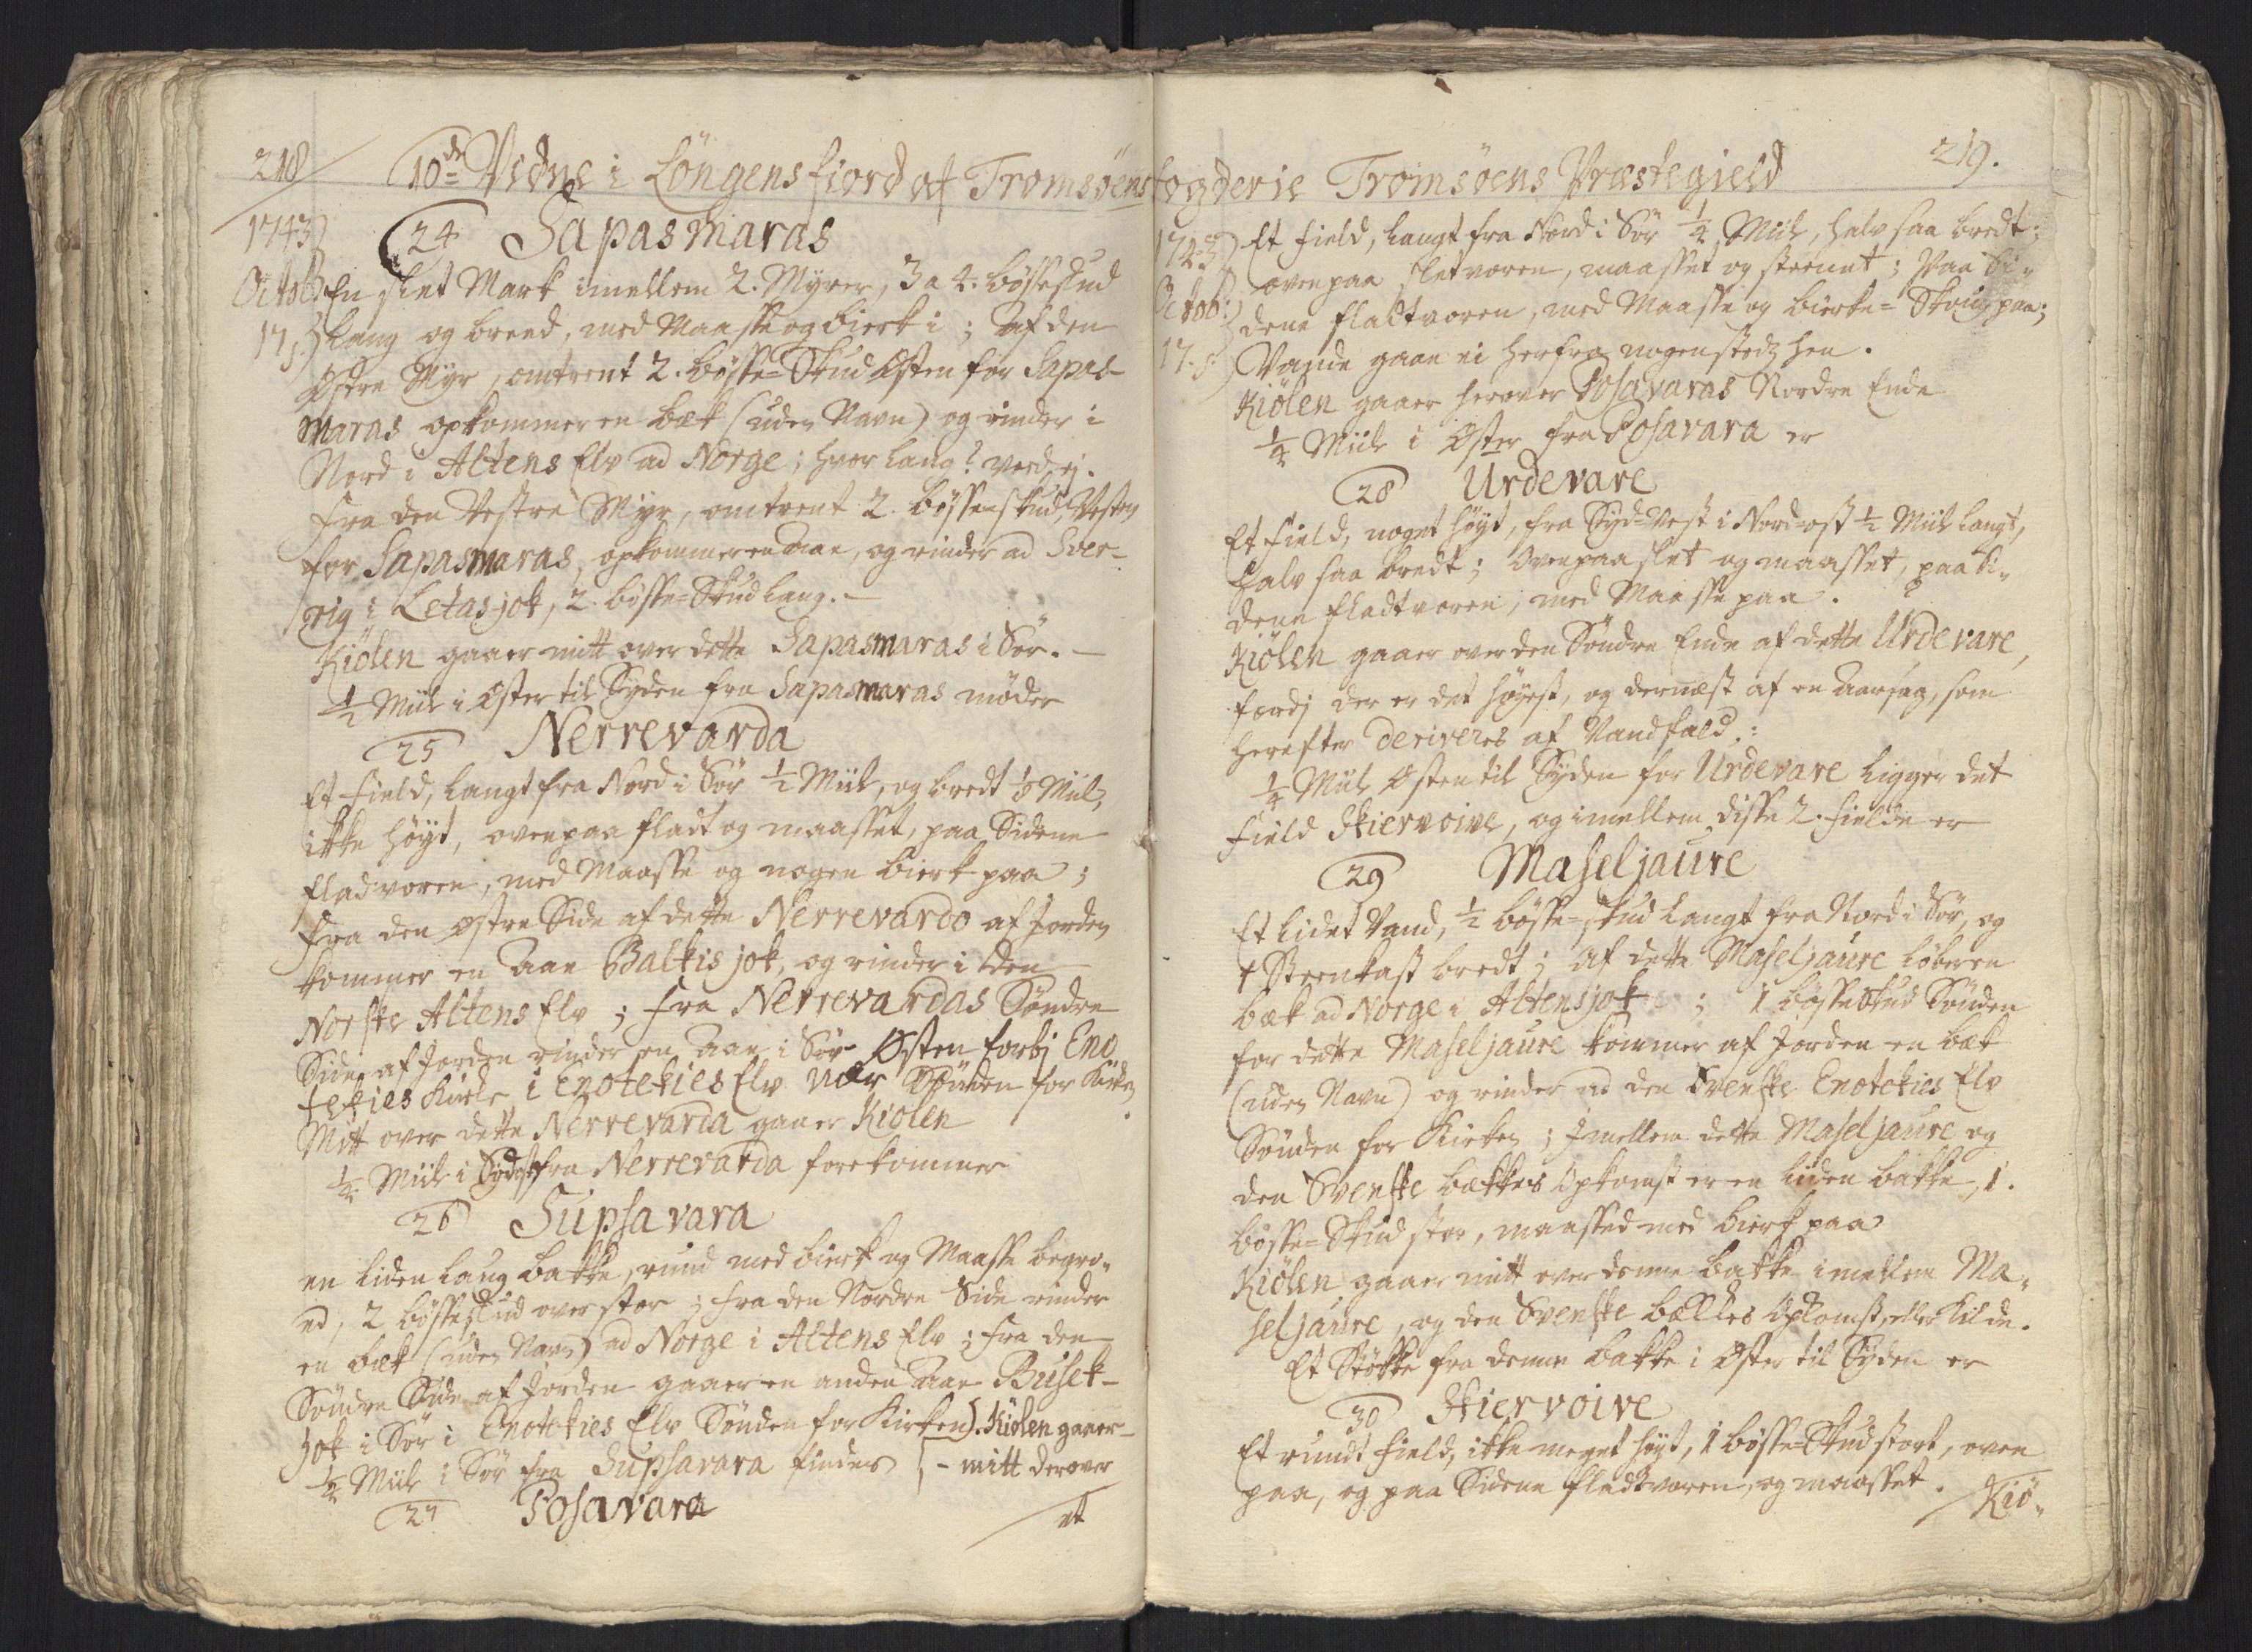 218
10de Vidne i Löngens fiord af Tromsöens
1743
Octobr:
17.s
24 Sapasmaras
En slet Mark imellem 2. Myrer, 3 a 4. bösseskud
lang og breed, med Maasse og bierk i; Af den
Østre Myr, omtrent 2. bösse-Skud Østen for Sapas-
maras opkommer en bæk (uden Navn) og rinder i
Nord i Altens Elv ad Norge; hvor lang? veed ej.
Fra den Vestre Myr, omtrent 2. bösse-skud Vesten
for Sapasmaras, opkommer en Aae, og rinder ad Sver-
rig i Letasjok, 2. bösse-Skud lang. -
Kiölen gaaer mitt over dette Sapasmaras i Sör. -
1/2 Miil i Øster til Syden fra Sapasmaras möder
25 Nerrevarda
Et Field, langt fra Nord i Sör 1/2 Miil, og bredt 1/8 Miil,
ikke höyt, ovenpaa fladt og maasset, paa Siderne
fladvoren, med Maasse og nogen bierk paa;
Fra den Østre Side af dette Nerrevardo af Jorden
kommer en Aae Balkisjok, og rinder i den
Norske Altens Elv; Fra Nerrevardas Söndre
Side af Jorden rinder en Aae i Sör Østen forbj Eno
tekies Kirke i Enotekies Elv nær Sönden for Kirken.
Mitt over dette Nerrevarda gaaer Kiölen
1/4 Miil i Sydost fra Nerrevarda forekommer
26 Supsavara
en liden lang bakke, rund med bierk og Maasse begro-
ed, 2 bösseskud over stor; Fra den Nordre Side rinder
en bæk (uden Navn) ad Norge i Altens Elv; Fra den
Söndre Side af Jorden gaaer en anden Aae Busek-
jok i Sör i Enotekies Elv Sönden for Kirken). Kiölen gaaer
1/4 Miil i Sör fra Supsavara findes - mitt derover
27 Posavara
et
219.
fogderie Tromsöens Præstegield
1743
Octob:
17.s
Et Field, langt fra Nord i Sör 1/4 Miil, halv saa bredt;
ovenpaa sletvoren, maasset og steenet; Paa Si-
derne fladtvoren, med Maasse og bierke-Skoug paa;
Vande gaae ei herfra nogenstedz hen.
Kiölen gaaer herover Posavaras Nordre Ende
1/4 Miil i Øster fra Posavara er
28 Urdevare
Et Field, noget höyt, fra Syd-Vest i Nord-ost 1/2 Miil langt,
halv saa bredt; Ovenpaa slet og maasset, paa Si-
derne fladtvoren, med Maasse paa.
Kiölen gaaer over den Söndre Ende af dette Urdevare,
fordj der er det höyest, og dernæst af en Aarsag, som
herefter deriveres af Vandfald:
1/4 Miil Østen til Syden for Urdevare ligger det
Field Skiervoive, og imellem disse 2. fielde er
29 Maseljaure
Et lidet Vand, 1/2 bösse-skud langt fra Nord i Sör, og
1 Steenkast bredt; Af dette Maseljaure löber en
bæk ad Norge i Altensjok; 1 bösseskud Sönden
for dette Maseljaure kommer af Jorden en bæk
(uden Navn) og rinder ad den Svenske Enotekies Elv
Sönden for Kirken; Jmellem dette Maseljaure og
den Svenske bækkes Opkomst er en liden bakke, 1.
bösse-Skud stor, maassed med bierk paa
Kiölen gaaer mitt over denne bakke imellem Ma-
seljaure, og den Svenske bækkes Opkomst, eller Kilde.
Et Stökke fra denne bakke i Øster til Syden er
30 Skiervoive
Et rundt Field, ikke meget höyt, 1 bösse-Skud stort, oven
paa, og paa Siderne fladtvoren, og maasset.
Kiö-